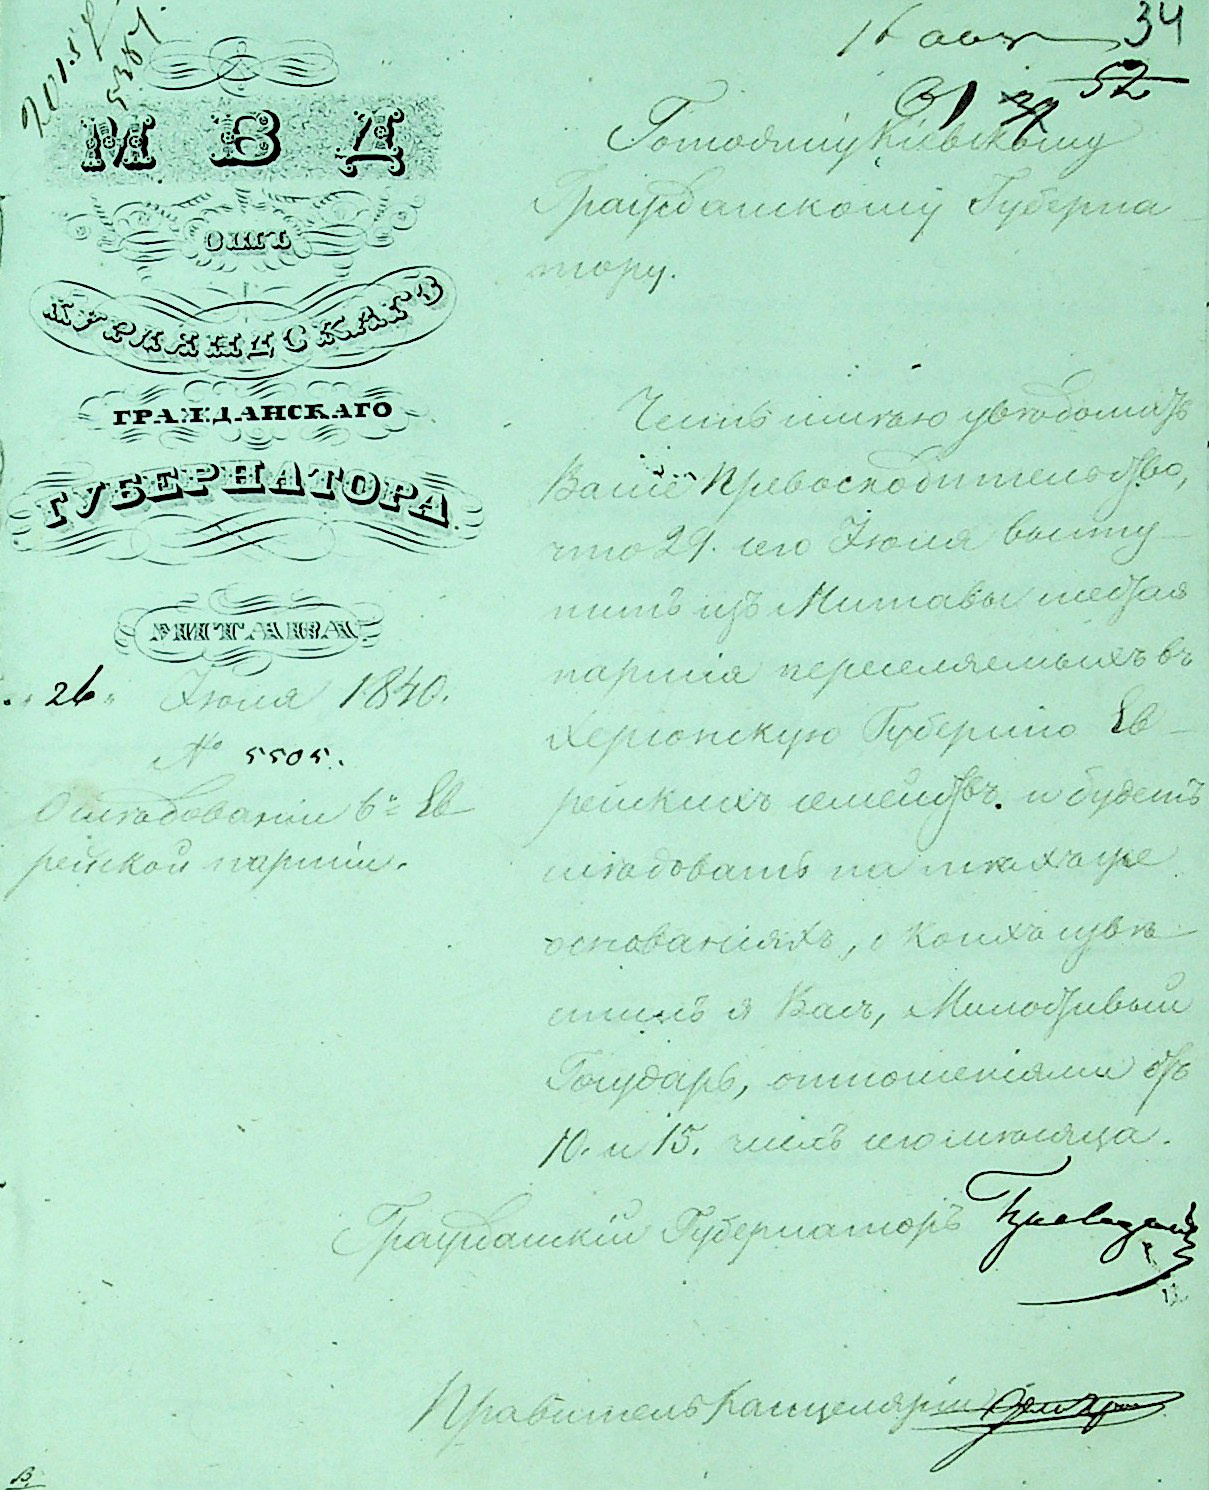 34
16 авг
52
М В Д
ОТЪ
КУРЛЯНДСКАГО
ГРАЖДАНСКАГО
ГУБЕРНАТОРА
МИТАВА.
26 Іюля 1840.
№ 5505.
О слѣдованіи 6й Ев
рейской партіи.
Господину Кіевскому
Гражданскому Губерна-
тору.
Честь имѣю увѣдомить
Ваше Превосходительство,
что 29. сего Іюля высту-
питъ изъ Митавы шестая
партія переселяемыхъ въ
Херсонскую Губернію Ев-
рейскихъ семействъ. и будетъ
слѣдовать на тѣхъ же
основаніяхъ, о коихъ извѣ-
стилъ я Васъ, Милостивый
Государь, отношеніями отъ
10. и 15. чиселъ сего мѣсяца.
Гражданскій Губернаторъ
Правитель Канцеляріи